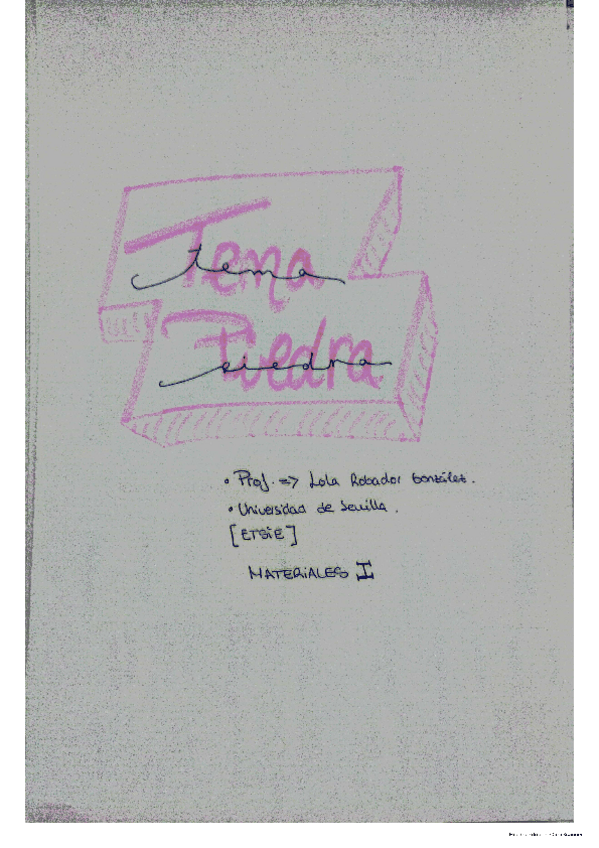 Tema
tema
Piedra
piedra
• Prof. => Lola Robador González.
• Universidad de Sevilla.
[ETSIE]
MATERIALES I